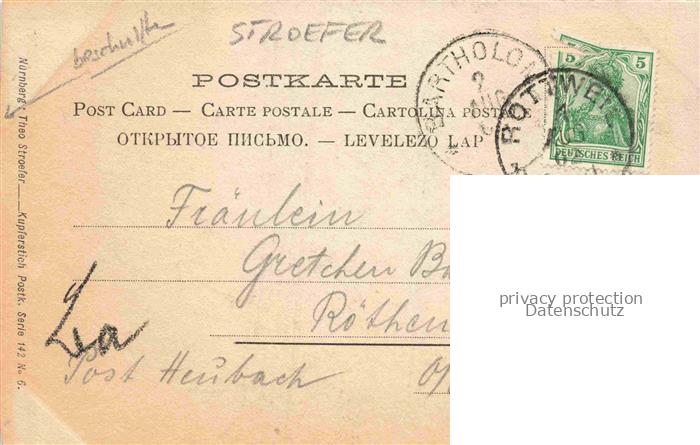 beschnitten
STROEFER
BARTHOLOMÄ
2
AUG
ROTTWEIL
1
AUG
5 5
DEUTSCHES REICH
POSTKARTE
POST CARD — CARTE POSTALE — CARTOLINA POSTALE
ОТКРЫТОЕ ПИСЬМО. — LEVELEZO LAP
Fräulein
Gretchen Ba
Röthen
Post Heubach O/
Nürnberg: Theo Stroefer Kupferstich Postk. Serie 142 No 6.
privacy protection
Datenschutz